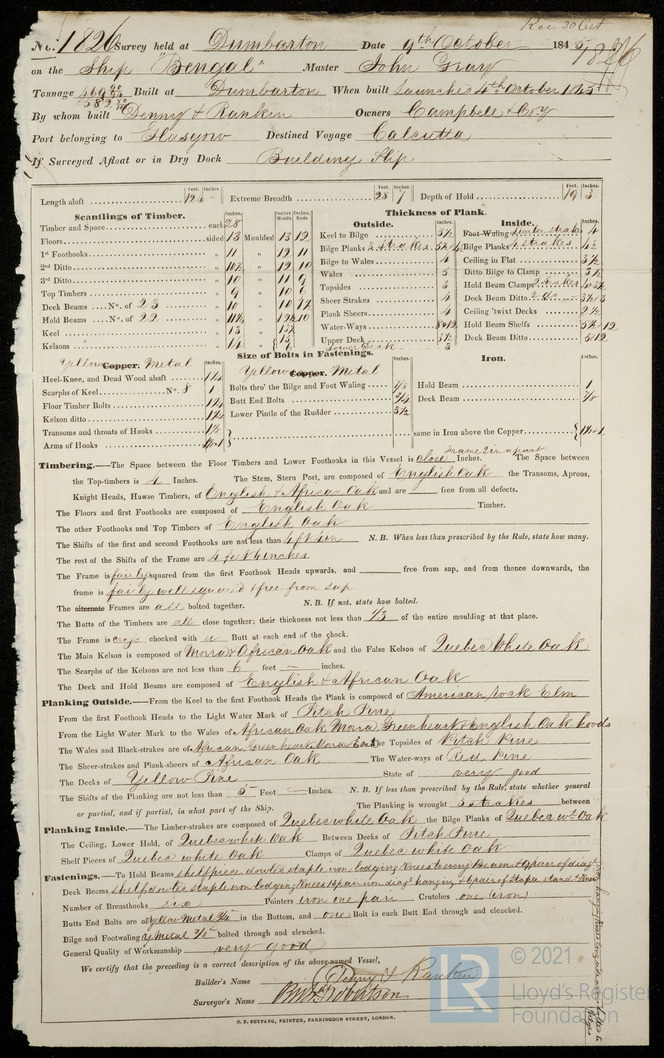 Rec 20 Oct
No. 1826 Survey held at Dumbarton Date 9th October 1845
on the Ship "Bengal" Master John Gray
Tonnage Built at Dumbarton When built launched 4th October 1845
By whom built Denny & Rankin Owners Campbell & Coy
Port belonging to Glasgow Destined Voyage Calcutta
If Surveyed Afloat or in Dry Dock Building Slip
Length aloft Feet. Inches. Extreme Breadth Feet. Inches. 28 7 Depth of Hold Feet. Inches. 19 3
Scantlings of Timber. Thickness of Plank.
Outside. Inside.
Timber and Space each 28
Floors sided 13 Moulded 13 12
1st Foothooks " 11 " 12 11
2nd Ditto " 10½ " 12 10
3rd Ditto " 10 " 11 9
Top Timbers " 9 " 10 6
Deck Beams No. of 23 " 10 "
Hold Beams No. of 22 "
Keel " 13 "
Kelsons " 14 "
Keel to Bilge
Bilge Planks 2 strakes
Bilge to Wales 4
Wales 5
Topsides 3
Sheer Strakes 4
Plank Sheers 4
Water-Ways
Upper Deck
Lower Deck 3
Foot Waling Limber strake 4
Bilge Planks 4 strakes 4½
Ceiling in Flat 3½
Ditto Bilge to Clamp 3½
Hold Beam Clamps 2 strakes
Deck Beam Ditto 2 do
Ceiling 'twixt Decks 2½
Hold Beam Shelfs
Deck Beam Ditto
Size of Bolts in Fastenings.
Yellow Copper. Metal Inches. Yellow Copper. Metal Inches. Iron. Inches.
Heel-Knee, and Dead Wood abaft 1¼
Scarphs of Keel No. 8 1
Floor Timber Bolts 1¼
Kelson ditto 1¼
Transoms and throats of Hooks
Arms of Hooks
Bolts thro' the Bilge and Foot Waling
Butt End Bolts
Lower Pintle of the Rudder 3½
Hold Beam 1
Deck Beam
same in Iron above the Copper
Timbering.—The Space between the Floor Timbers and Lower Foothooks in this Vessel is close Inches. The Space between
the Top-timbers is 4 Inches. The Stem, Stern Post, are composed of English Oak the Transoms, Aprons,
Knight Heads, Hawse Timbers, of English & African Oak and are free from all defects.
The Floors and first Foothooks are composed of English Oak Timber.
The other Foothooks and Top Timbers of English Oak
The Shifts of the first and second Foothooks are not less than 4 ft 6 in N.B. When less than prescribed by the Rule, state how many.
The rest of the Shifts of the Frame are 4 feet 6 inches
The Frame is fairly squared from the first Foothook Heads upwards, and free from sap, and from thence downwards, the
frame is fairly well squared & free from sap
The alternate Frames are all bolted together. N.B. If not, state how bolted.
The Butts of the Timbers are all close together; their thickness not less than 1/3 of the entire moulding at that place.
The Frame is chocked with a Butt at each end of the chock.
The Main Kelson is composed of Mora & African Oak and the False Kelson of Quebec White Oak
The Scarphs of the Kelsons are not less than 6 feet — inches.
The Deck and Hold Beams are composed of English & African Oak
Planking Outside.—From the Keel to the first Foothook Heads the Plank is composed of American Rock Elm
From the first Foothook Heads to the Light Water Mark of Pitch Pine
From the Light Water Mark to the Wales of African Oak Mora Greenheart & English Oak hoods
The Wales and Black-strakes are of African Greenheart Mora & E oak The Topsides of Pitch Pine
The Sheer-strakes and Plank-sheers of African Oak The Water-ways of Red Pine
The Decks of Yellow Pine State of very good
The Shifts of the Planking are not less than 5 Feet — Inches. N.B. If less than prescribed by the Rule, state whether general
or partial, and if partial, in what part of the Ship. The Planking is wrought 3 strakes between
Planking Inside.—The Limber-strakes are composed of Quebec white Oak the Bilge Planks of Quebec wt Oak
The Ceiling, Lower Hold, of Quebec white Oak Between Decks of Pitch Pine
Shelf Pieces of Quebec white Oak Clamps of Quebec white Oak
Fastenings.—To Hold Beams shelf piece dowels staple iron lodging knees to every Beam & 9 pair of diagl
Deck Beams shelf dowels staple iron lodging knees
Number of Breasthooks six Pointers iron one pair Crutches one (iron)
Butts End Bolts are of yellow metal in the Bottom, and one Bolt in each Butt End through and clenched.
Bilge and Footwaling y metal bolted through and clenched.
General Quality of Workmanship very good
We certify that the preceding is a correct description of the above-named Vessel,
Builder's Name Denny & Rankin
Surveyor's Name Robertson
C. F. SEYFANG, PRINTER, FARRINGDON STREET, LONDON.
LR © 2021
Lloyd's Register
Foundation